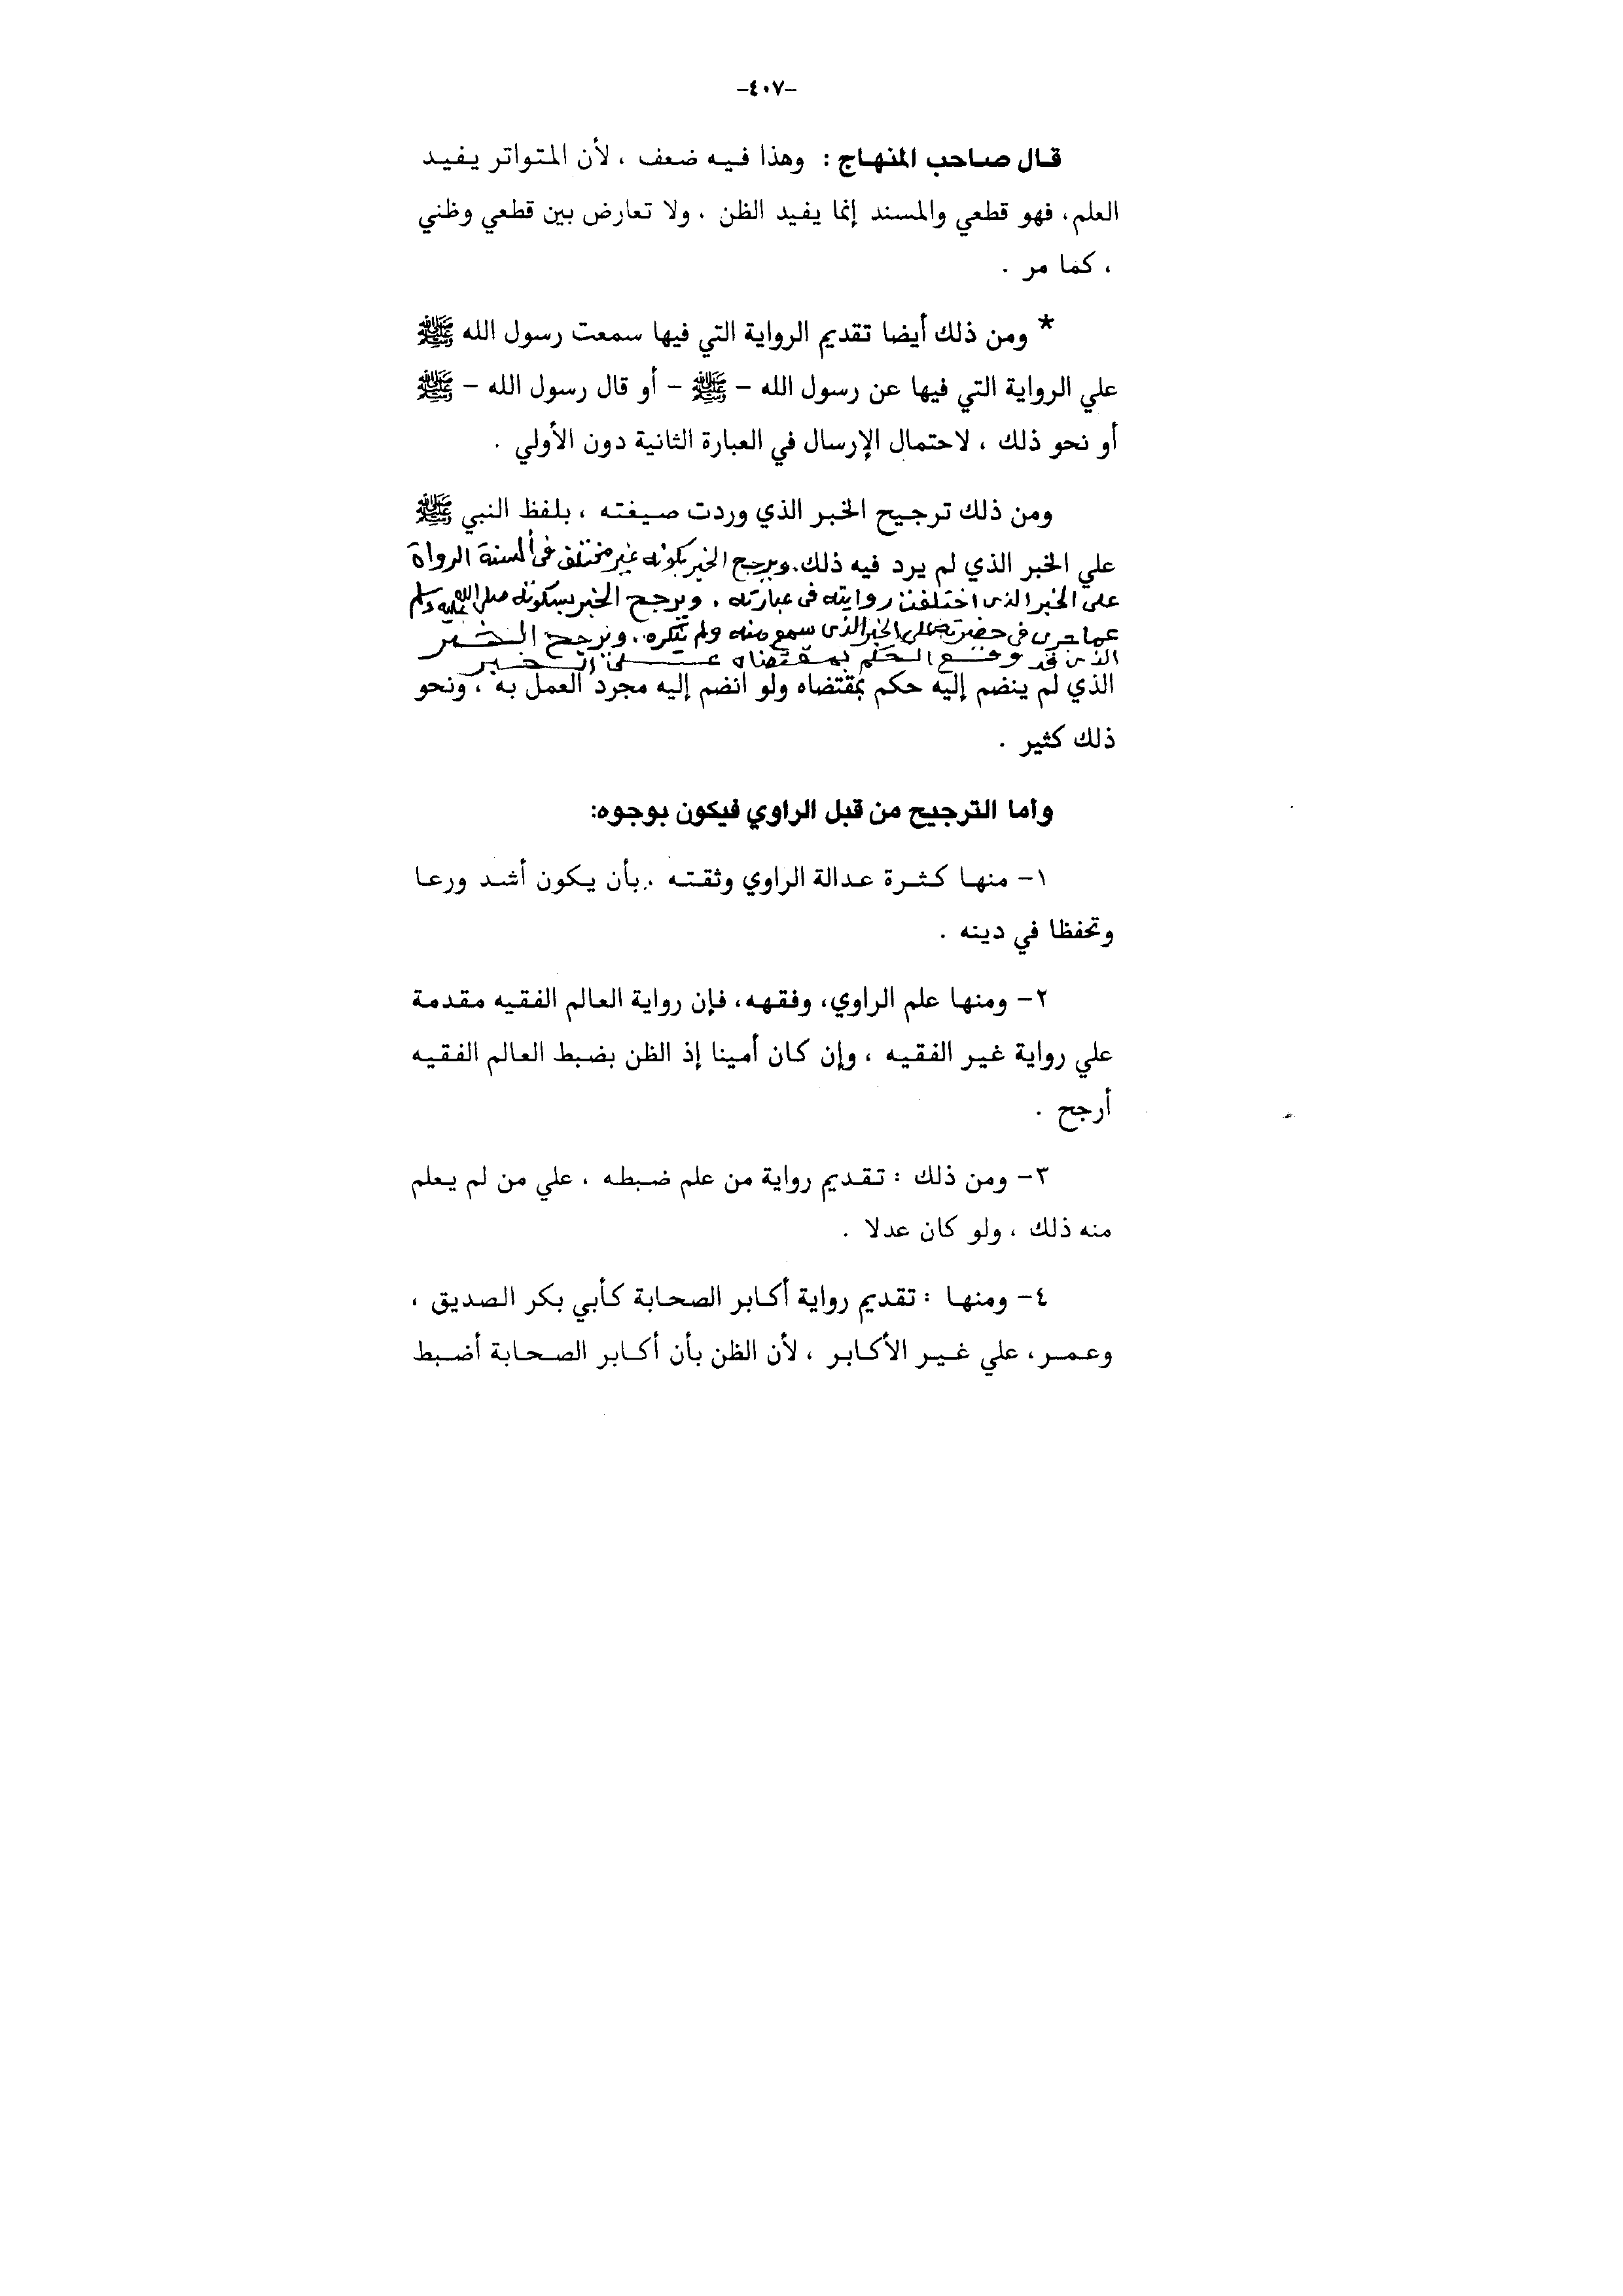 -٤٠٧-
قال صاحب المنهاج : وهذا فيه ضعف ، لأن المتواتر يفيد
العلم، فهو قطعي والمسند إنما يفيد الظن ، ولا تعارض بين قطعي وظني
، كما مر .
* ومن ذلك أيضا تقديم الرواية التي فيها سمعت رسول الله ﷺ
علي الرواية التي فيها عن رسول الله - ﷺ - أو قال رسول الله - ﷺ
أو نحو ذلك ، لاحتمال الإرسال في العبارة الثانية دون الأولي .
ومن ذلك ترجيح الخبر الذي وردت صيغته ، بلفظ النبي ﷺ
علي الخبر الذي لم يرد فيه ذلك. ويرجح الخبر بكونه غير مختلف فى ألسنة الرواة
على الخبر الذى اختلفت روايته فى عبارته . ويرجح الخبر بسكوته صلى الله عليه وسلم
عما جرى فى حضرته على الخبر الذى سمع منه ولم ينكره. ويرجح الخبر
الذى قد وقع الحكم بمقتضاه على الخبر
الذي لم ينضم إليه حكم بمقتضاه ولو انضم إليه مجرد العمل به ، ونحو
ذلك كثير .
وأما الترجيح من قبل الراوي فيكون بوجوه:
١- منها كثرة عدالة الراوي وثقته ، بأن يكون أشد ورعا
وتحفظا في دينه .
٢- ومنها علم الراوي، وفقهه، فإن رواية العالم الفقيه مقدمة
علي رواية غير الفقيه ، وإن كان أمينا إذ الظن بضبط العالم الفقيه
أرجح .
٣- ومن ذلك : تقديم رواية من علم ضبطه ، علي من لم يعلم
منه ذلك ، ولو كان عدلا .
٤- ومنها : تقديم رواية أكابر الصحابة كأبي بكر الصديق ،
وعمر، علي غير الأكابر ، لأن الظن بأن أكابر الصحابة أضبط